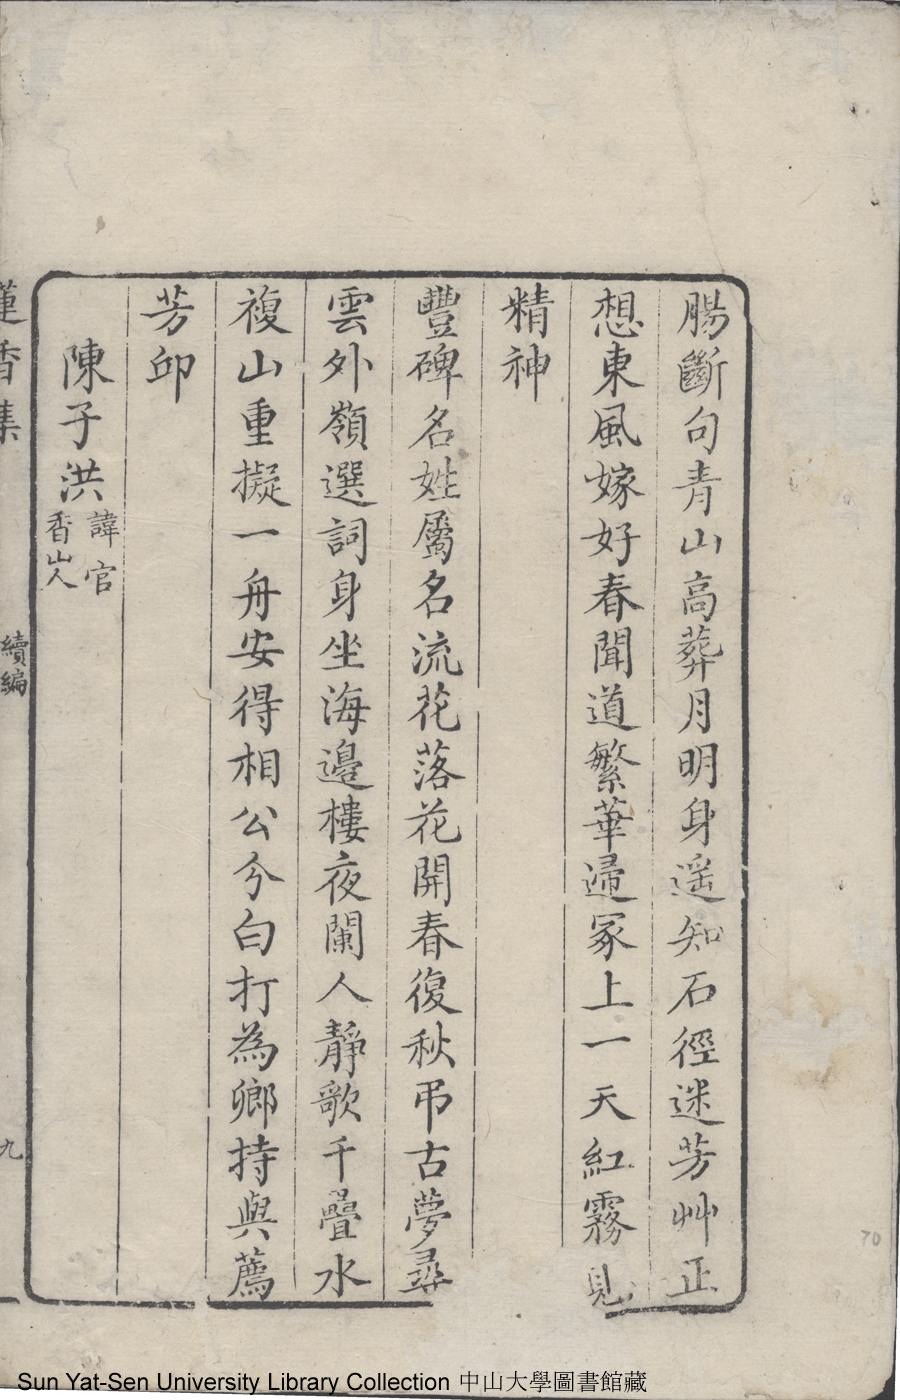 腸斷句青山高葬月明身遥知石徑迷芳艸正
想東風嫁好春聞道繁華歸冢上一天紅霧見
精神
豐碑名姓屬名流花落花開春復秋弔古夢尋
雲外嶺選詞身坐海邊樓夜闌人靜歌千疊水
複山重擬一舟安得相公分白打為鄉持與薦
芳卯
陳子洪諱官
香山人
蓮香集 續編 九
70
Sun Yat-Sen University Library Collection 中山大學圖書館藏